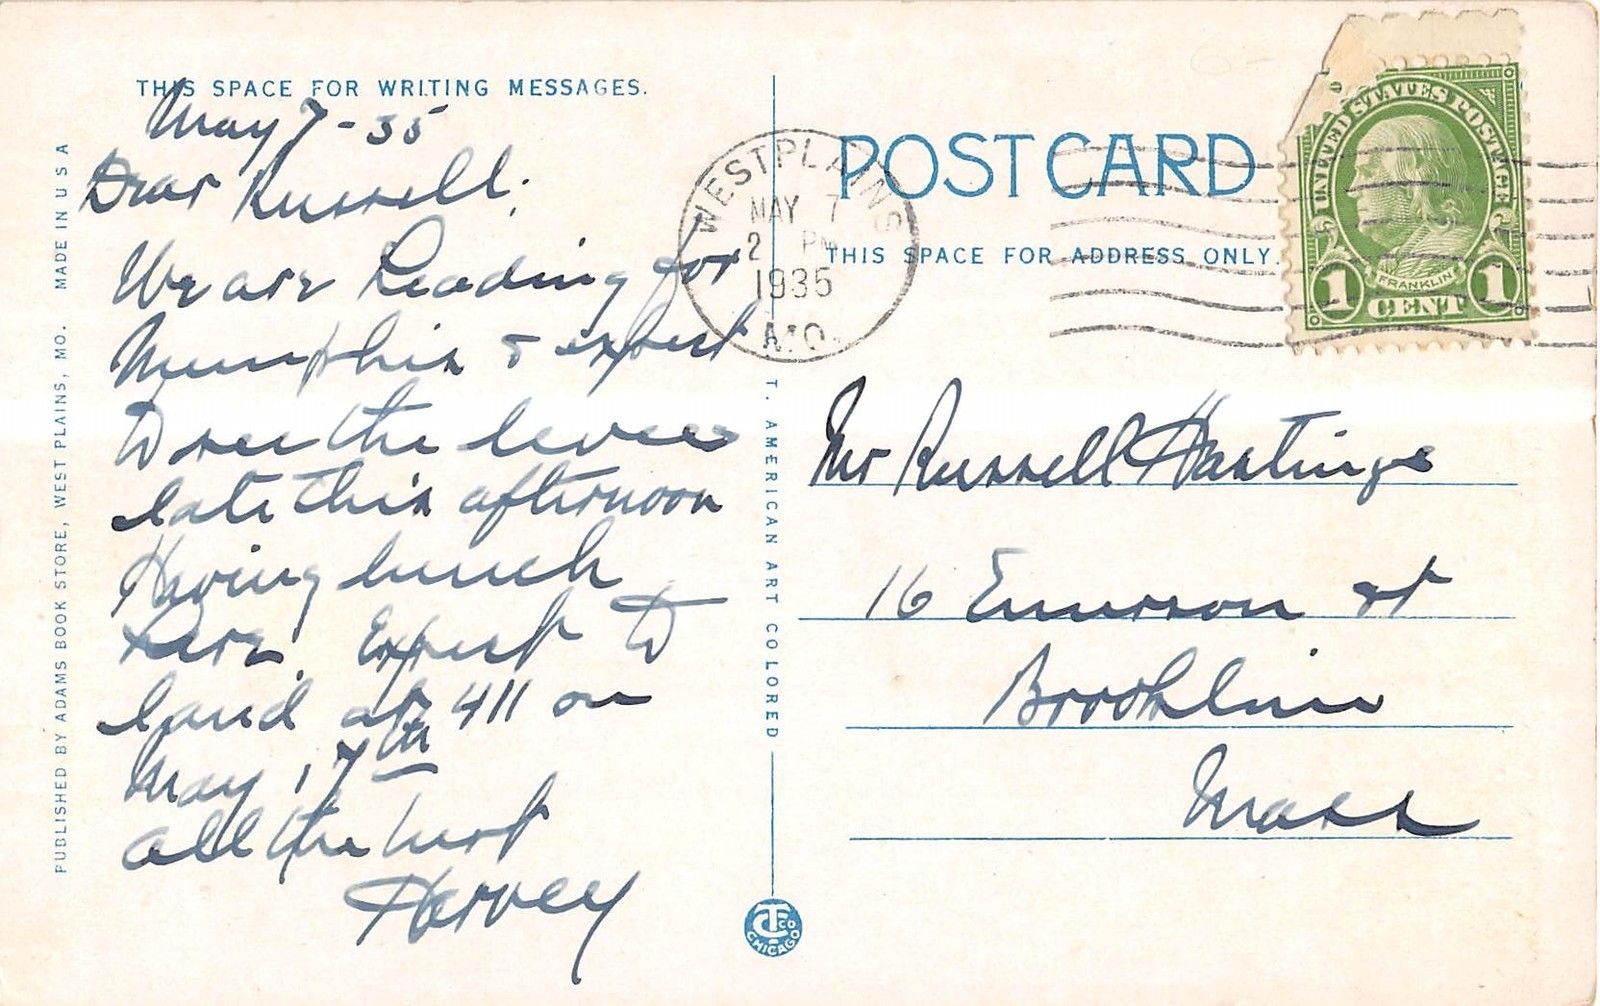 THIS SPACE FOR WRITING MESSAGES.
May 7 - 35
Dear Russell:
We are heading for
Memphis & expect
to see the levees
late this afternoon
Having lunch
here. Expect to
land at 411 on
May 17th
all the best
Harvey
PUBLISHED BY ADAMS BOOK STORE, WEST PLAINS, MO. MADE IN U S A
C. T. AMERICAN ART COLORED
CTCO
CHICAGO
WEST PLAINS
MAY 7
2 PM
1935
MO.
POST CARD
THIS SPACE FOR ADDRESS ONLY.
UNITED STATES POSTAGE
FRANKLIN
1 CENT 1
Mr Russell Hastings
16 Emerson st
Brookline
Mass